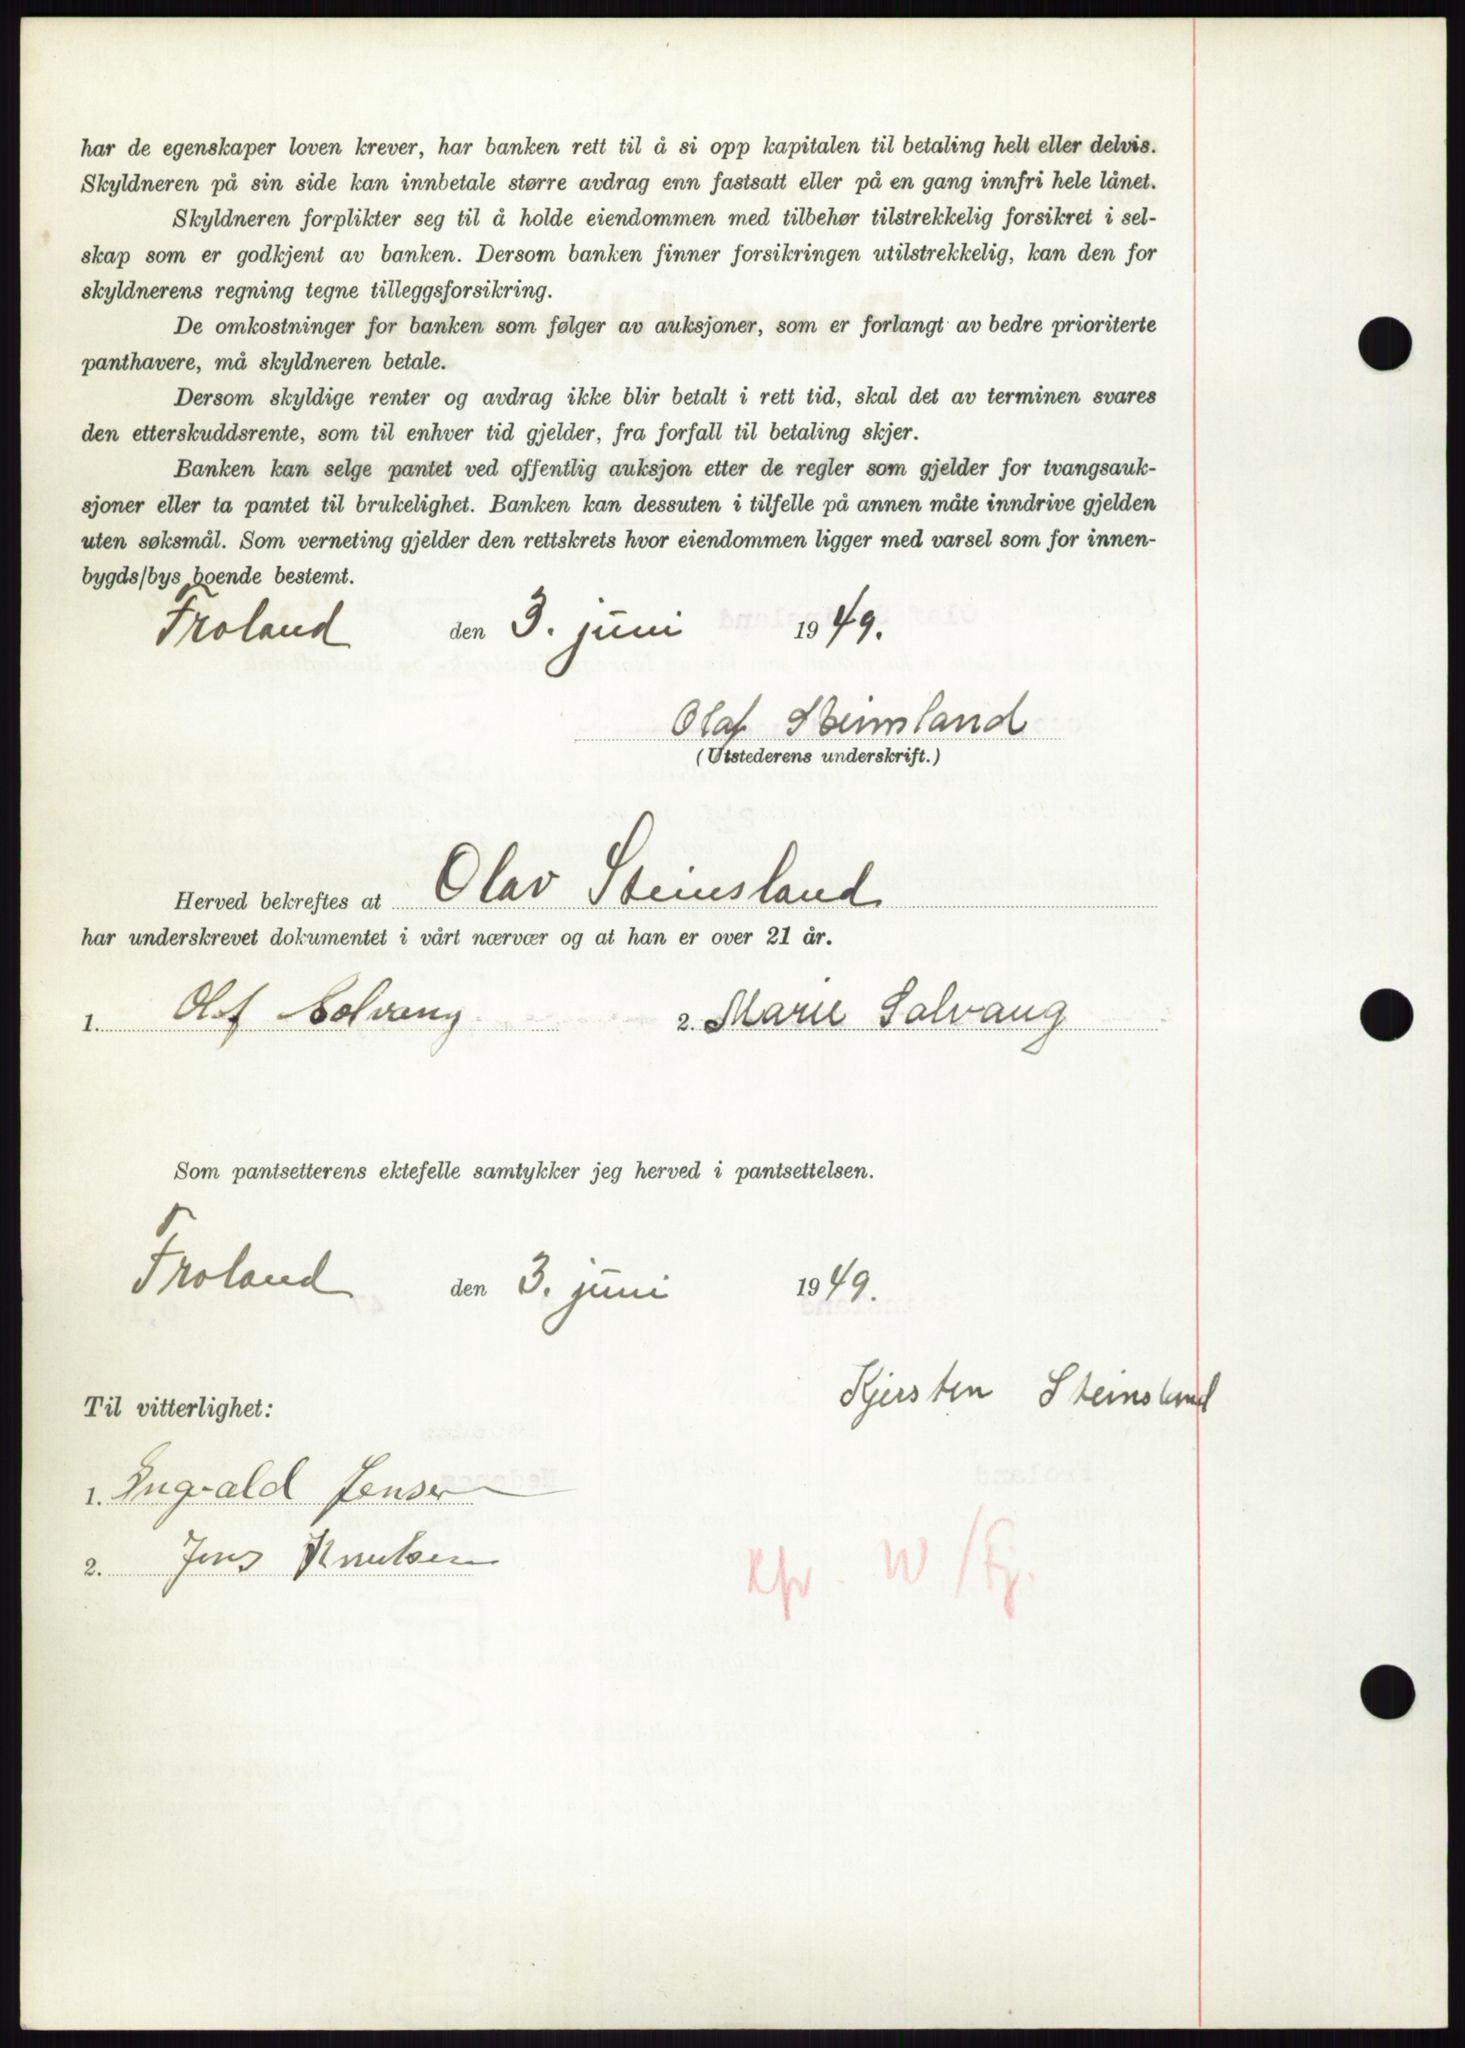 har de egenskaper loven krever, har banken rett til å si opp kapitalen til betaling helt eller delvis.
Skyldneren på sin side kan innbetale større avdrag enn fastsatt eller på en gang innfri hele lånet.
Skyldneren forplikter seg til å holde eiendommen med tilbehør tilstrekkelig forsikret i sel-
skap som er godkjent av banken. Dersom banken finner forsikringen utilstrekkelig, kan den for
skyldnerens regning tegne tilleggsforsikring.
De omkostninger for banken som følger av auksjoner, som er forlangt av bedre prioriterte
panthavere, må skyldneren betale.
Dersom skyldige renter og avdrag ikke blir betalt i rett tid, skal det av terminen svares
den etterskuddsrente, som til enhver tid gjelder, fra forfall til betaling skjer.
Banken kan selge pantet ved offentlig auksjon etter de regler som gjelder for tvangsauk-
sjoner eller ta pantet til brukelighet. Banken kan dessuten i tilfelle på annen måte inndrive gjelden
uten søksmål. Som verneting gjelder den rettskrets hvor eiendommen ligger med varsel som for innen-
bygds/bys boende bestemt.
Froland den 3. juni 1949.
Olaf Steinsland
(Utstederens underskrift.)
Herved bekreftes at Olav Steinsland
har underskrevet dokumentet i vårt nærvær og at han er over 21 år.
1. Olaf Solvang 2. Marie Solvang
Som pantsetterens ektefelle samtykker jeg herved i pantsettelsen.
Froland den 3. juni 1949.
Kjersten Steinsland
Til vitterlighet:
1. Engvald Jensen
2. Jens Knutsen
Kfr. W/Fj.